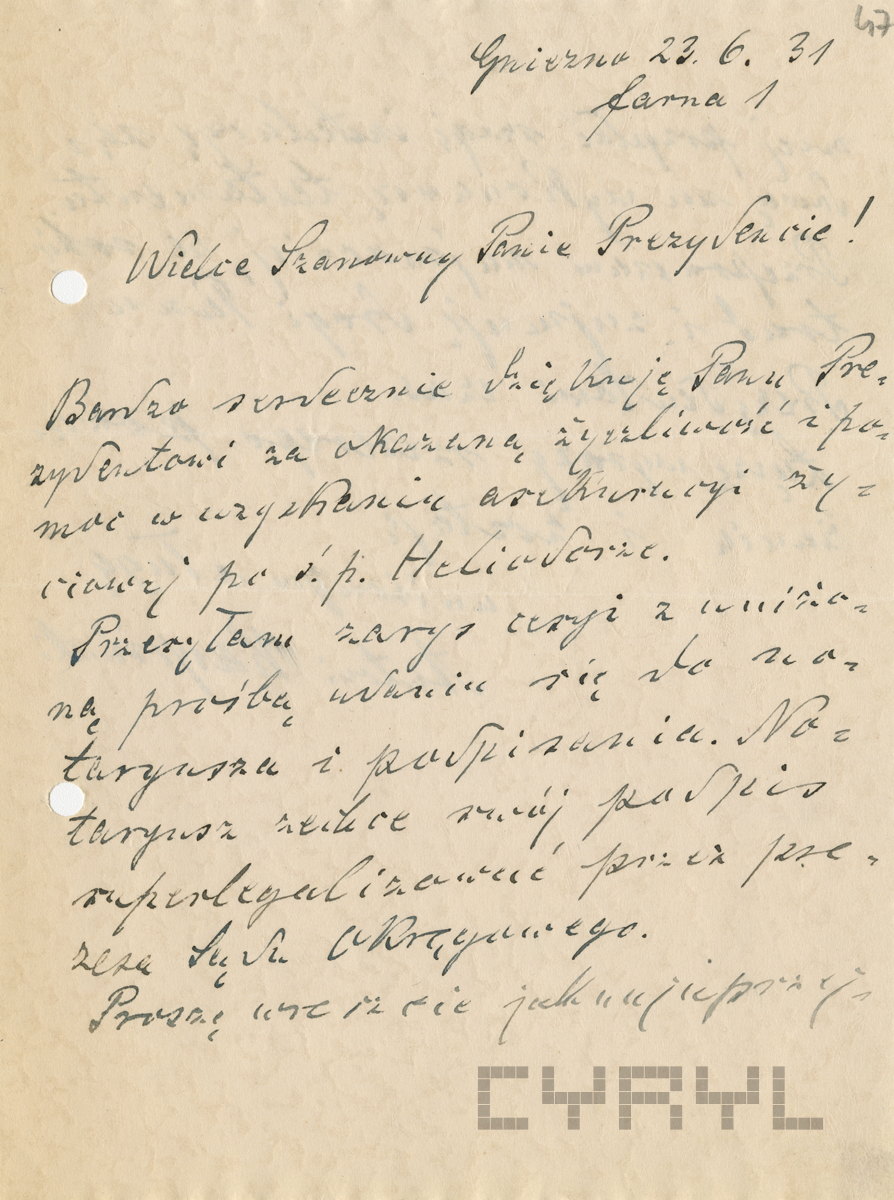 47
Gniezno 23. 6. 31
farna 1
Wielce Szanowny Panie Prezydencie!
Bardzo serdecznie dziękuję Panu Pre=
zydentowi za okazaną życzliwość i po=
moc w uzyskaniu asekuracyi ży=
ciowej po ś. p. Heliodorze.
Przesyłam zarys cesyi z uniżo=
ną prośbą udania się do no=
taryusza i podpisania. No=
taryusz zechce swój podpis
superlegalizować przez pre=
zesa Sądu Okręgowego.
Proszę wreszcie jaknajuprzej=
CYRYL